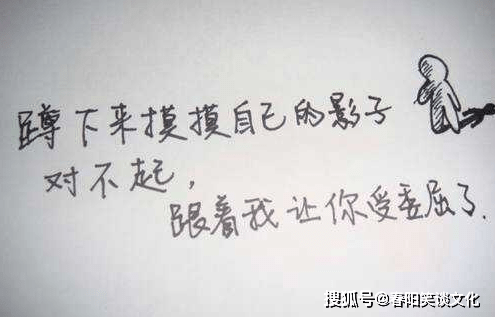 蹲下来摸摸自己的影子
对不起，
跟着我让你受委屈了.
搜狐号@春阳笑谈文化